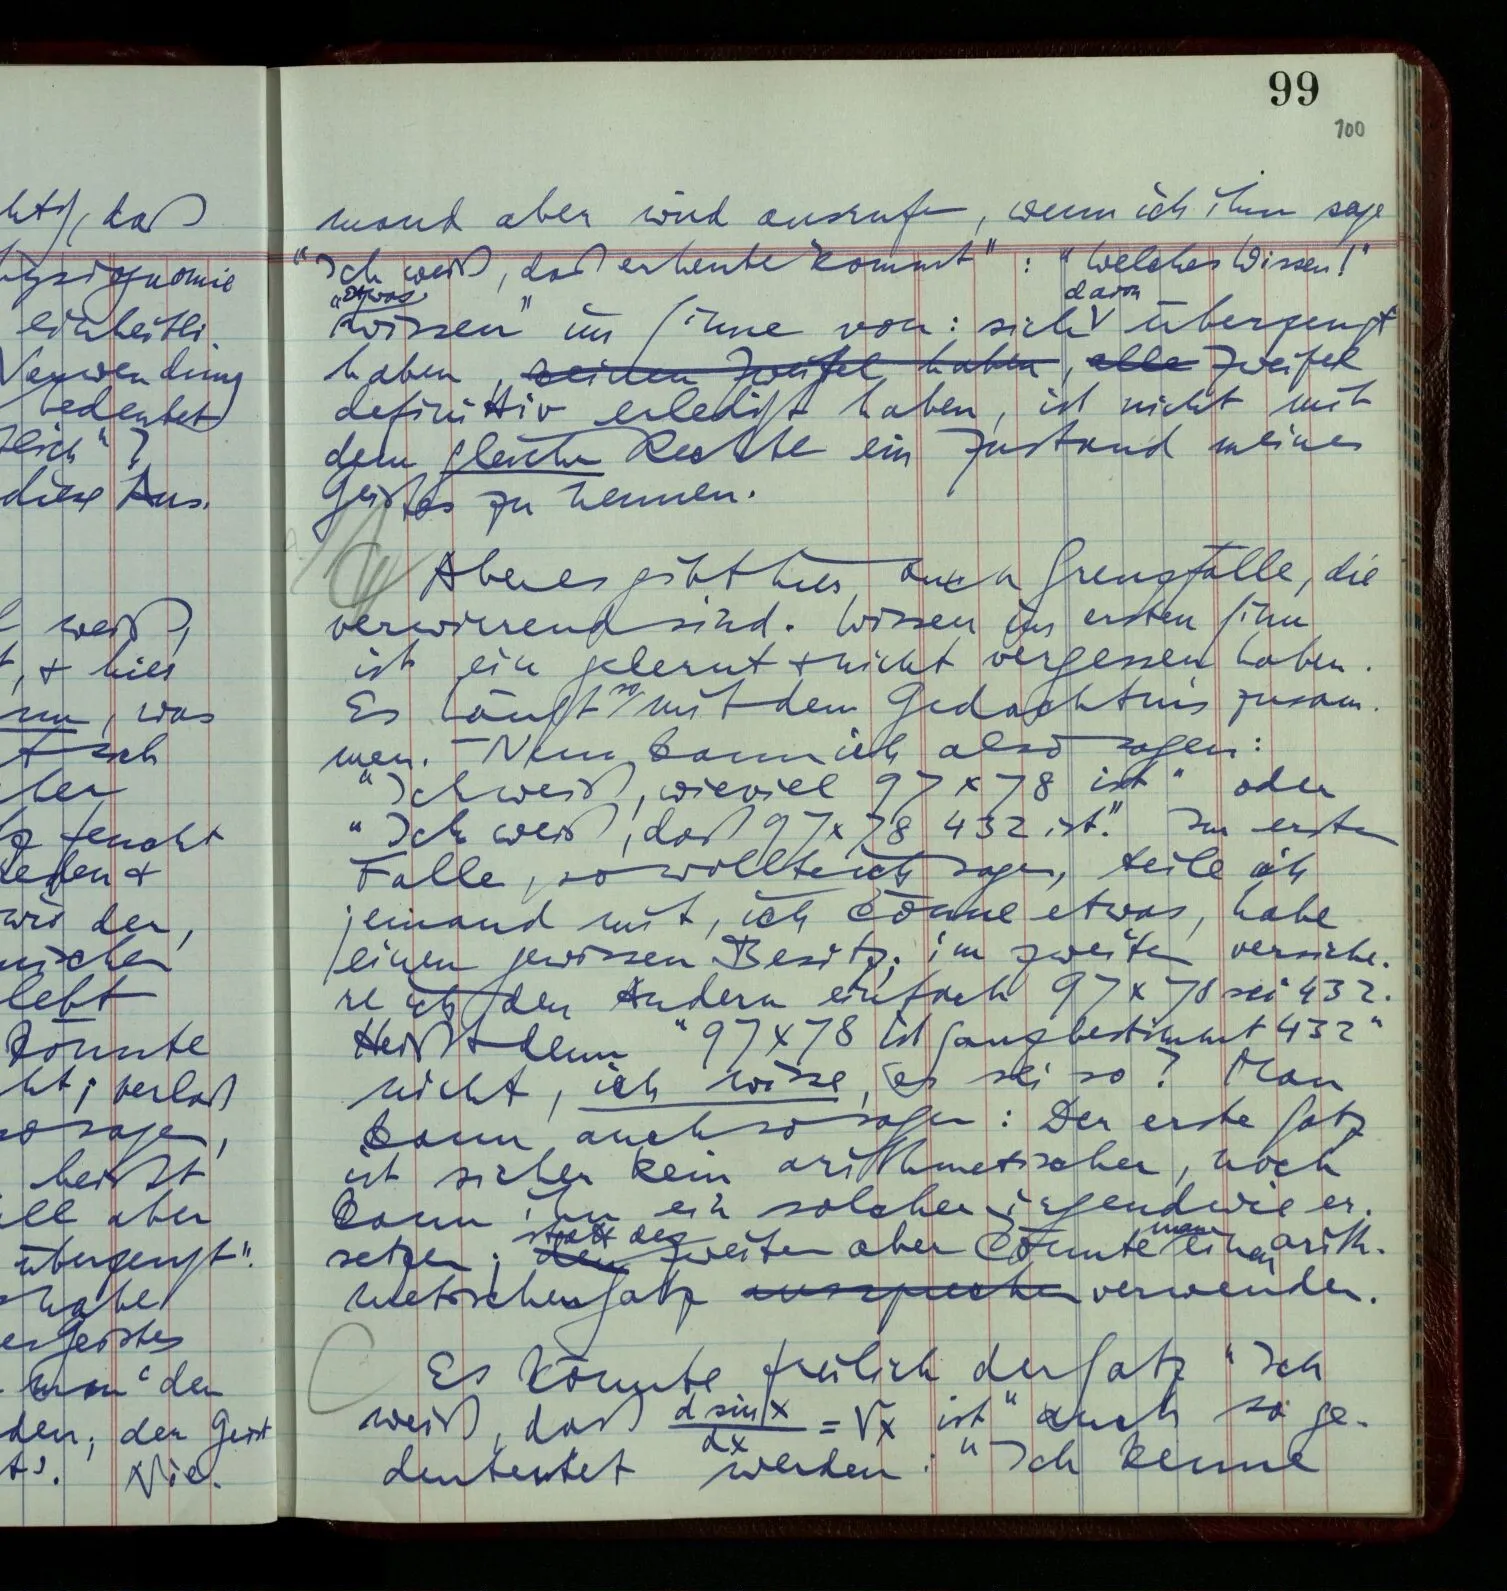 99
100
mand aber wird ausrufen, wenn ich ihm sage
"Ich weiß, daß er heute kommt": "Welches Wissen!"
"etwas
wissen" im Sinne von: sich davon überzeugt
haben, keinen Zweifel haben, alle Zweifel
definitiv erledigt haben, ist nicht mit
dem gleichen Rechte ein Zustand meines
Geistes zu nennen.
Aber es gibt hier auch Grenzfälle, die
verwirrend sind. Wissen im ersten Sinn
ist ein gelernt & nicht vergessen haben.
Es hängt so mit dem Gedächtnis zusam-
men. – Nun kann ich also sagen:
"Ich weiß, wieviel 97 x 78 ist" oder
"Ich weiß, daß 97 x 78 432 ist." Im ersten
Falle, so wollte ich sagen, teile ich
jemand mit, ich könne etwas, habe
einen gewissen Besitz; im zweiten versiche-
re ich den Andern einfach 97 x 78 sei 432.
Heißt denn "97 x 78 ist ganz bestimmt 432"
nicht, ich wisse, es sei so? Man
kann auch so sagen: Der erste Satz
ist sicher kein arithmetischer, noch
kann ihn ein solcher irgendwie er-
setzen; den statt des zweiten aber könnte man einen arith-
metischen Satz aussprechen verwenden.
Es könnte freilich der Satz "Ich
weiß, daß d sin x / dx = √x ist" auch so ge-
deutet werden: "Ich kenne
daß
physiognomie
einheitli-
Verwendung
bedeutet
diese Aus-
weiß,
, & hier
, was
sich
der,
lebt
könnte
; verlaß
so sagen,
heißt
aber
überzeugt".
habe
Geistes
den
; der Geist
Nie-